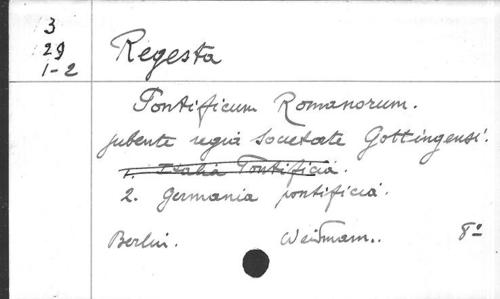 3
29
1-2
Regesta
Pontificum Romanorum.
jubente regia Societate Gottingensi.
1. Italia Pontificia.
2. Germania pontificia.
Berlin. Weidmann. 8°